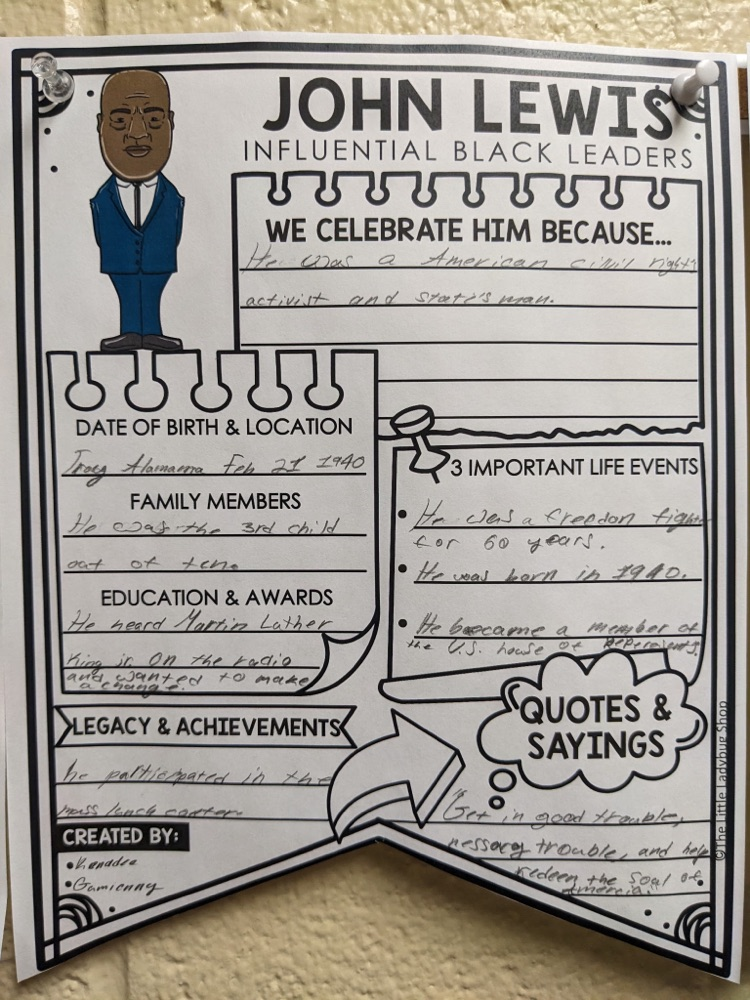 JOHN LEWIS
INFLUENTIAL BLACK LEADERS
WE CELEBRATE HIM BECAUSE...
He was a American civil rights
activist and stati's man.
DATE OF BIRTH & LOCATION
Troy Alamama Feb 21 1940
FAMILY MEMBERS
He was the 3rd child
out of ten.
EDUCATION & AWARDS
He heard Martin Luther
King jr. On the radio
and wanted to make
a change.
3 IMPORTANT LIFE EVENTS
• He was a freedon fight
for 60 years.
• He was born in 1940.
• He became a member of
the U.S. house of
LEGACY & ACHIEVEMENTS
he participated in the
mass lunch
CREATED BY:
• Kanadre
•
QUOTES &
SAYINGS
"Get in good trouble,
nessary trouble, and help
redeen the Soul of
Amercia."
©The Little Ladybug Shop